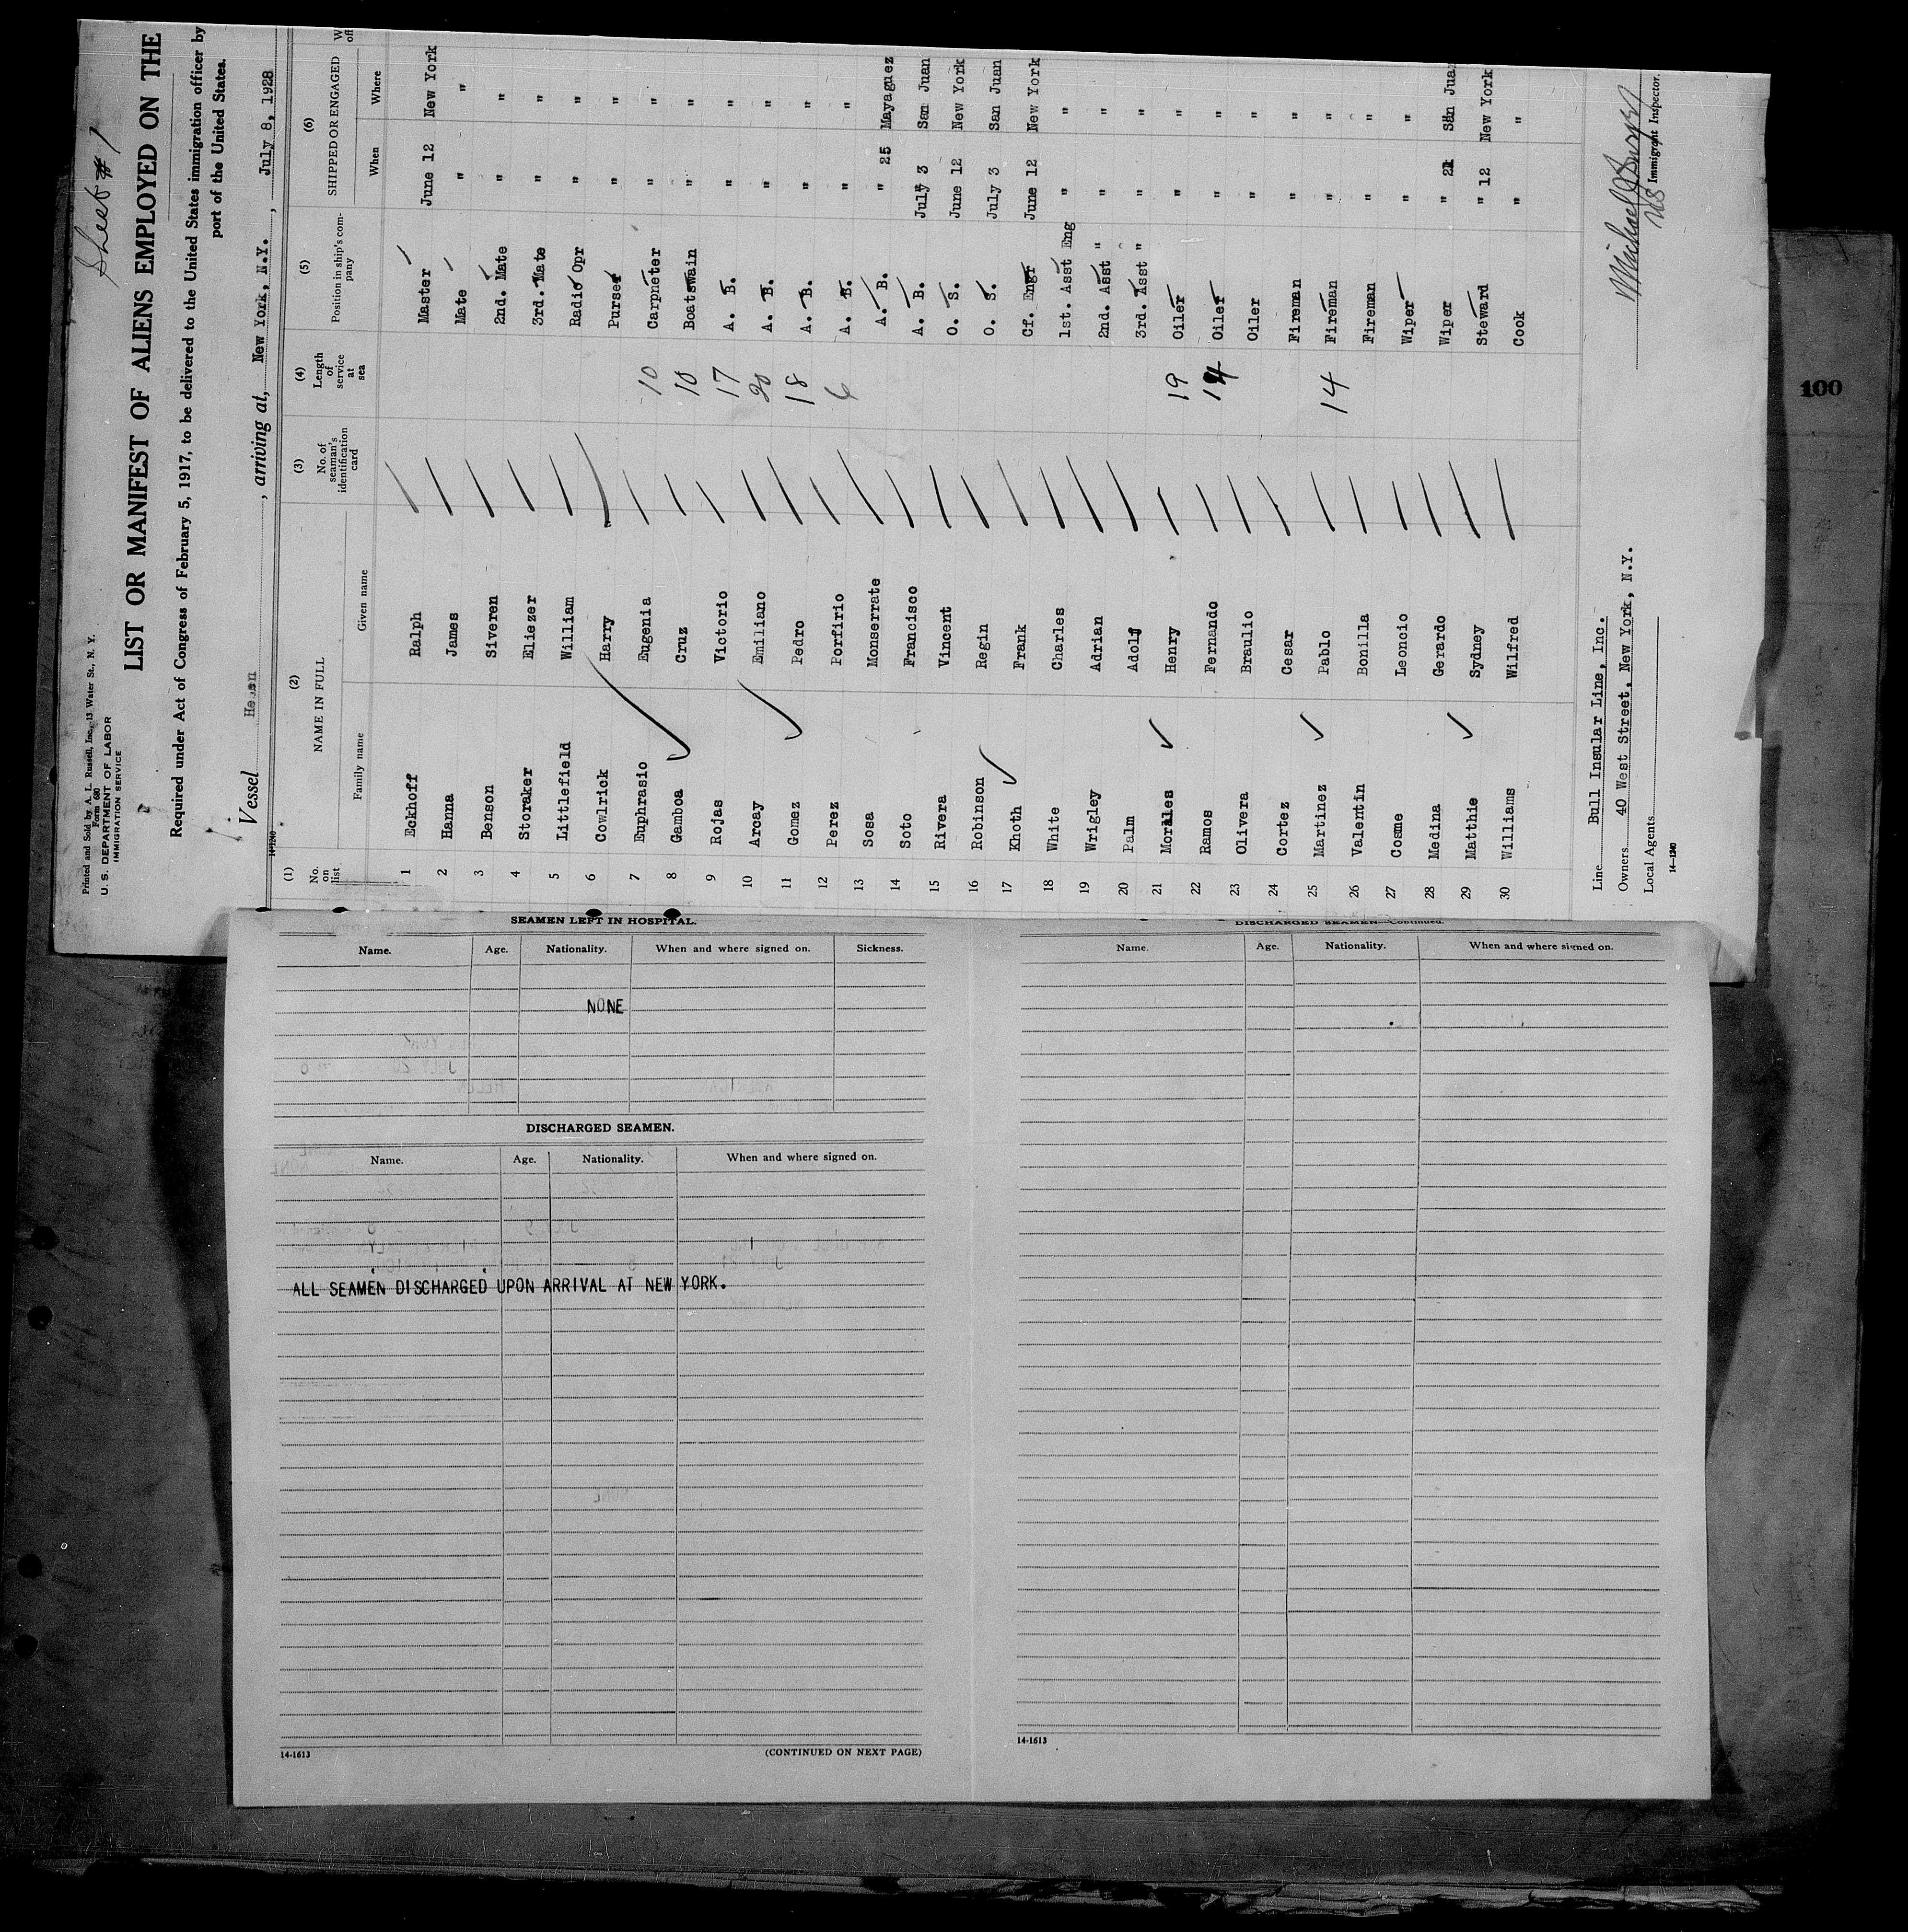 Sheet # 1
Printed and Sold by A. L. Russell, Inc., 13 Water St., N. Y.
Form 680
U. S. DEPARTMENT OF LABOR
IMMIGRATION SERVICE
LIST OR MANIFEST OF ALIENS EMPLOYED ON THE
Required under Act of Congress of February 5, 1917, to be delivered to the United States immigration officer by
port of the United States.
Vessel , arriving at, New York, N.Y. , July 8, 1928
14-1240
(1) (2) (3) (4) (5) (6)
No. on list NAME IN FULL No. of seaman's identification card Length of service at sea Position in ship's company SHIPPED OR ENGAGED
Family name Given name When Where
1 Eckhoff Ralph Master June 12 New York
2 Hanna James Mate " "
3 Benson Siveren 2nd. Mate " "
4 Storaker Eliezer 3rd. Mate " "
5 Littlefield William Radio Opr " "
6 Cowlrick Harry Purser " "
7 Euphrasio Eugenia 10 Carpneter " "
8 Gamboa Cruz 10 Boatswain " "
9 Rojas Victorio 17 A. B. " "
10 Arcay Emiliano 20 A. B. " "
11 Gomez Pedro 18 A. B. " "
12 Perez Porfirio 6 A. B. " "
13 Sosa Monserrate A. B. " 25 Mayaguez
14 Soto Francisco A. B. July 3 San Juan
15 Rivera Vincent O. S. June 12 New York
16 Robinson Regin O. S. July 3 San Juan
17 Khoth Frank Cf. Engr June 12 New York
18 White Charles 1st. Asst Eng " "
19 Wrigley Adrian 2nd. Asst " " "
20 Palm Adolf 3rd. Asst " " "
21 Morales Henry 19 Oiler " "
22 Ramos Fernando 14 Oiler " "
23 Olivera Braulio Oiler " "
24 Cortez Cesar Fireman " "
25 Martinez Pablo 14 Fireman " "
26 Valentin Bonilla Fireman " "
27 Cosme Leoncio Wiper " "
28 Medina Gerardo Wiper " 21 San Juan
29 Matthie Sydney Steward " 12 New York
30 Williams Wilfred Cook " "
Line Bull Insular Line, Inc.
Owners 40 West Street, New York, N.Y.
Local Agents
Immigrant Inspector.
14-1240
100
SEAMEN LEFT IN HOSPITAL.
Name. Age. Nationality. When and where signed on. Sickness.
NONE
DISCHARGED SEAMEN.
Name. Age. Nationality. When and where signed on.
ALL SEAMEN DISCHARGED UPON ARRIVAL AT NEW YORK.
14-1613 (CONTINUED ON NEXT PAGE)
DISCHARGED SEAMEN—Continued.
Name. Age. Nationality. When and where signed on.
14-1613